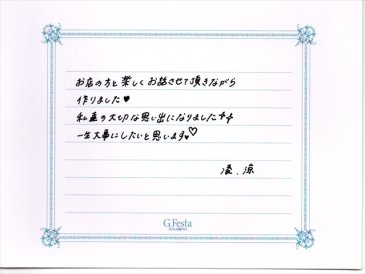 お店の方と楽しくお話させて頂きながら
作りました♥
私達の大切な思い出になりました✝✝
一生大事にしたいと思います♥♡
凌、涼
G.Festa